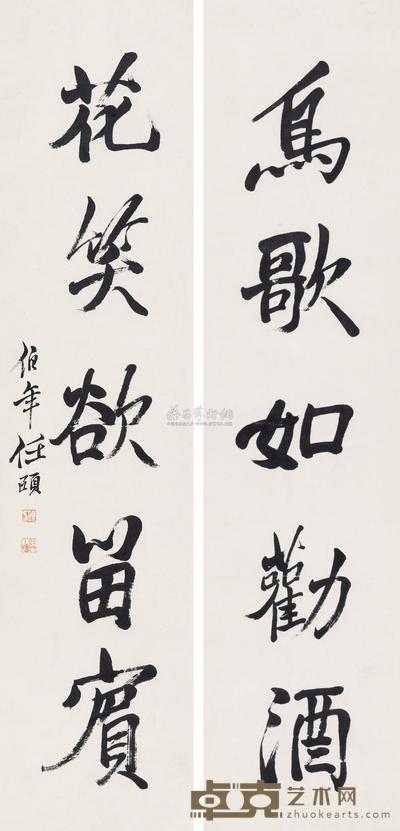 鳥歌如勸酒
花笑欲留賓
伯年任頤
卓克艺术网
zhuokearts.com